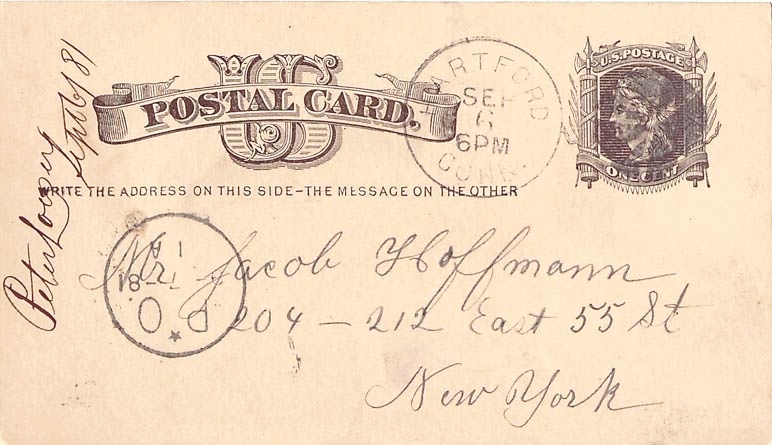 U.S. POSTAGE
ONE CENT
US
POSTAL CARD.
WRITE THE ADDRESS ON THIS SIDE-THE MESSAGE ON THE OTHER
HARTFORD
SEP
6
6PM
CONN.
Peter
Sept 6/81
Mr. Jacob Hoffmann
204 – 212 East 55 St
New York
P.O.
7-81
1 A